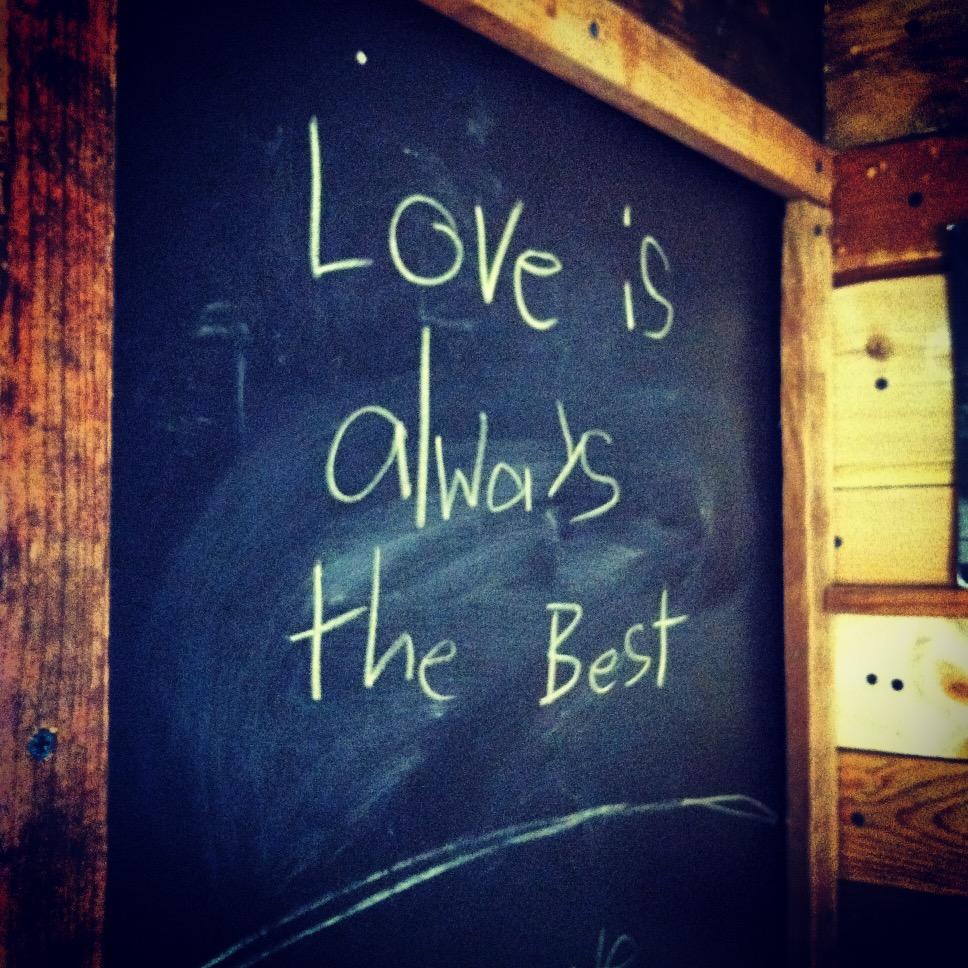 Love is
always
the Best